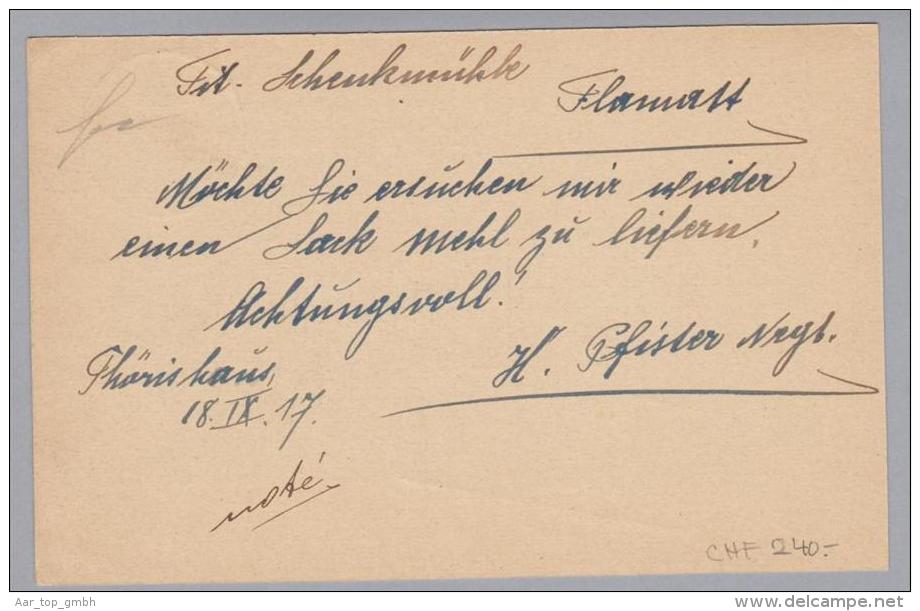 Tit. Schenkmühle
Flamatt
Möchte Sie ersuchen mir wieder
einen Sack Mehl zu liefern.
Achtungsvoll!
H. Pfister Negt.
Thörishaus,
18. IX. 17.
noté
CHF 240.-
Aar_top_gmbh
www.delcampe.net